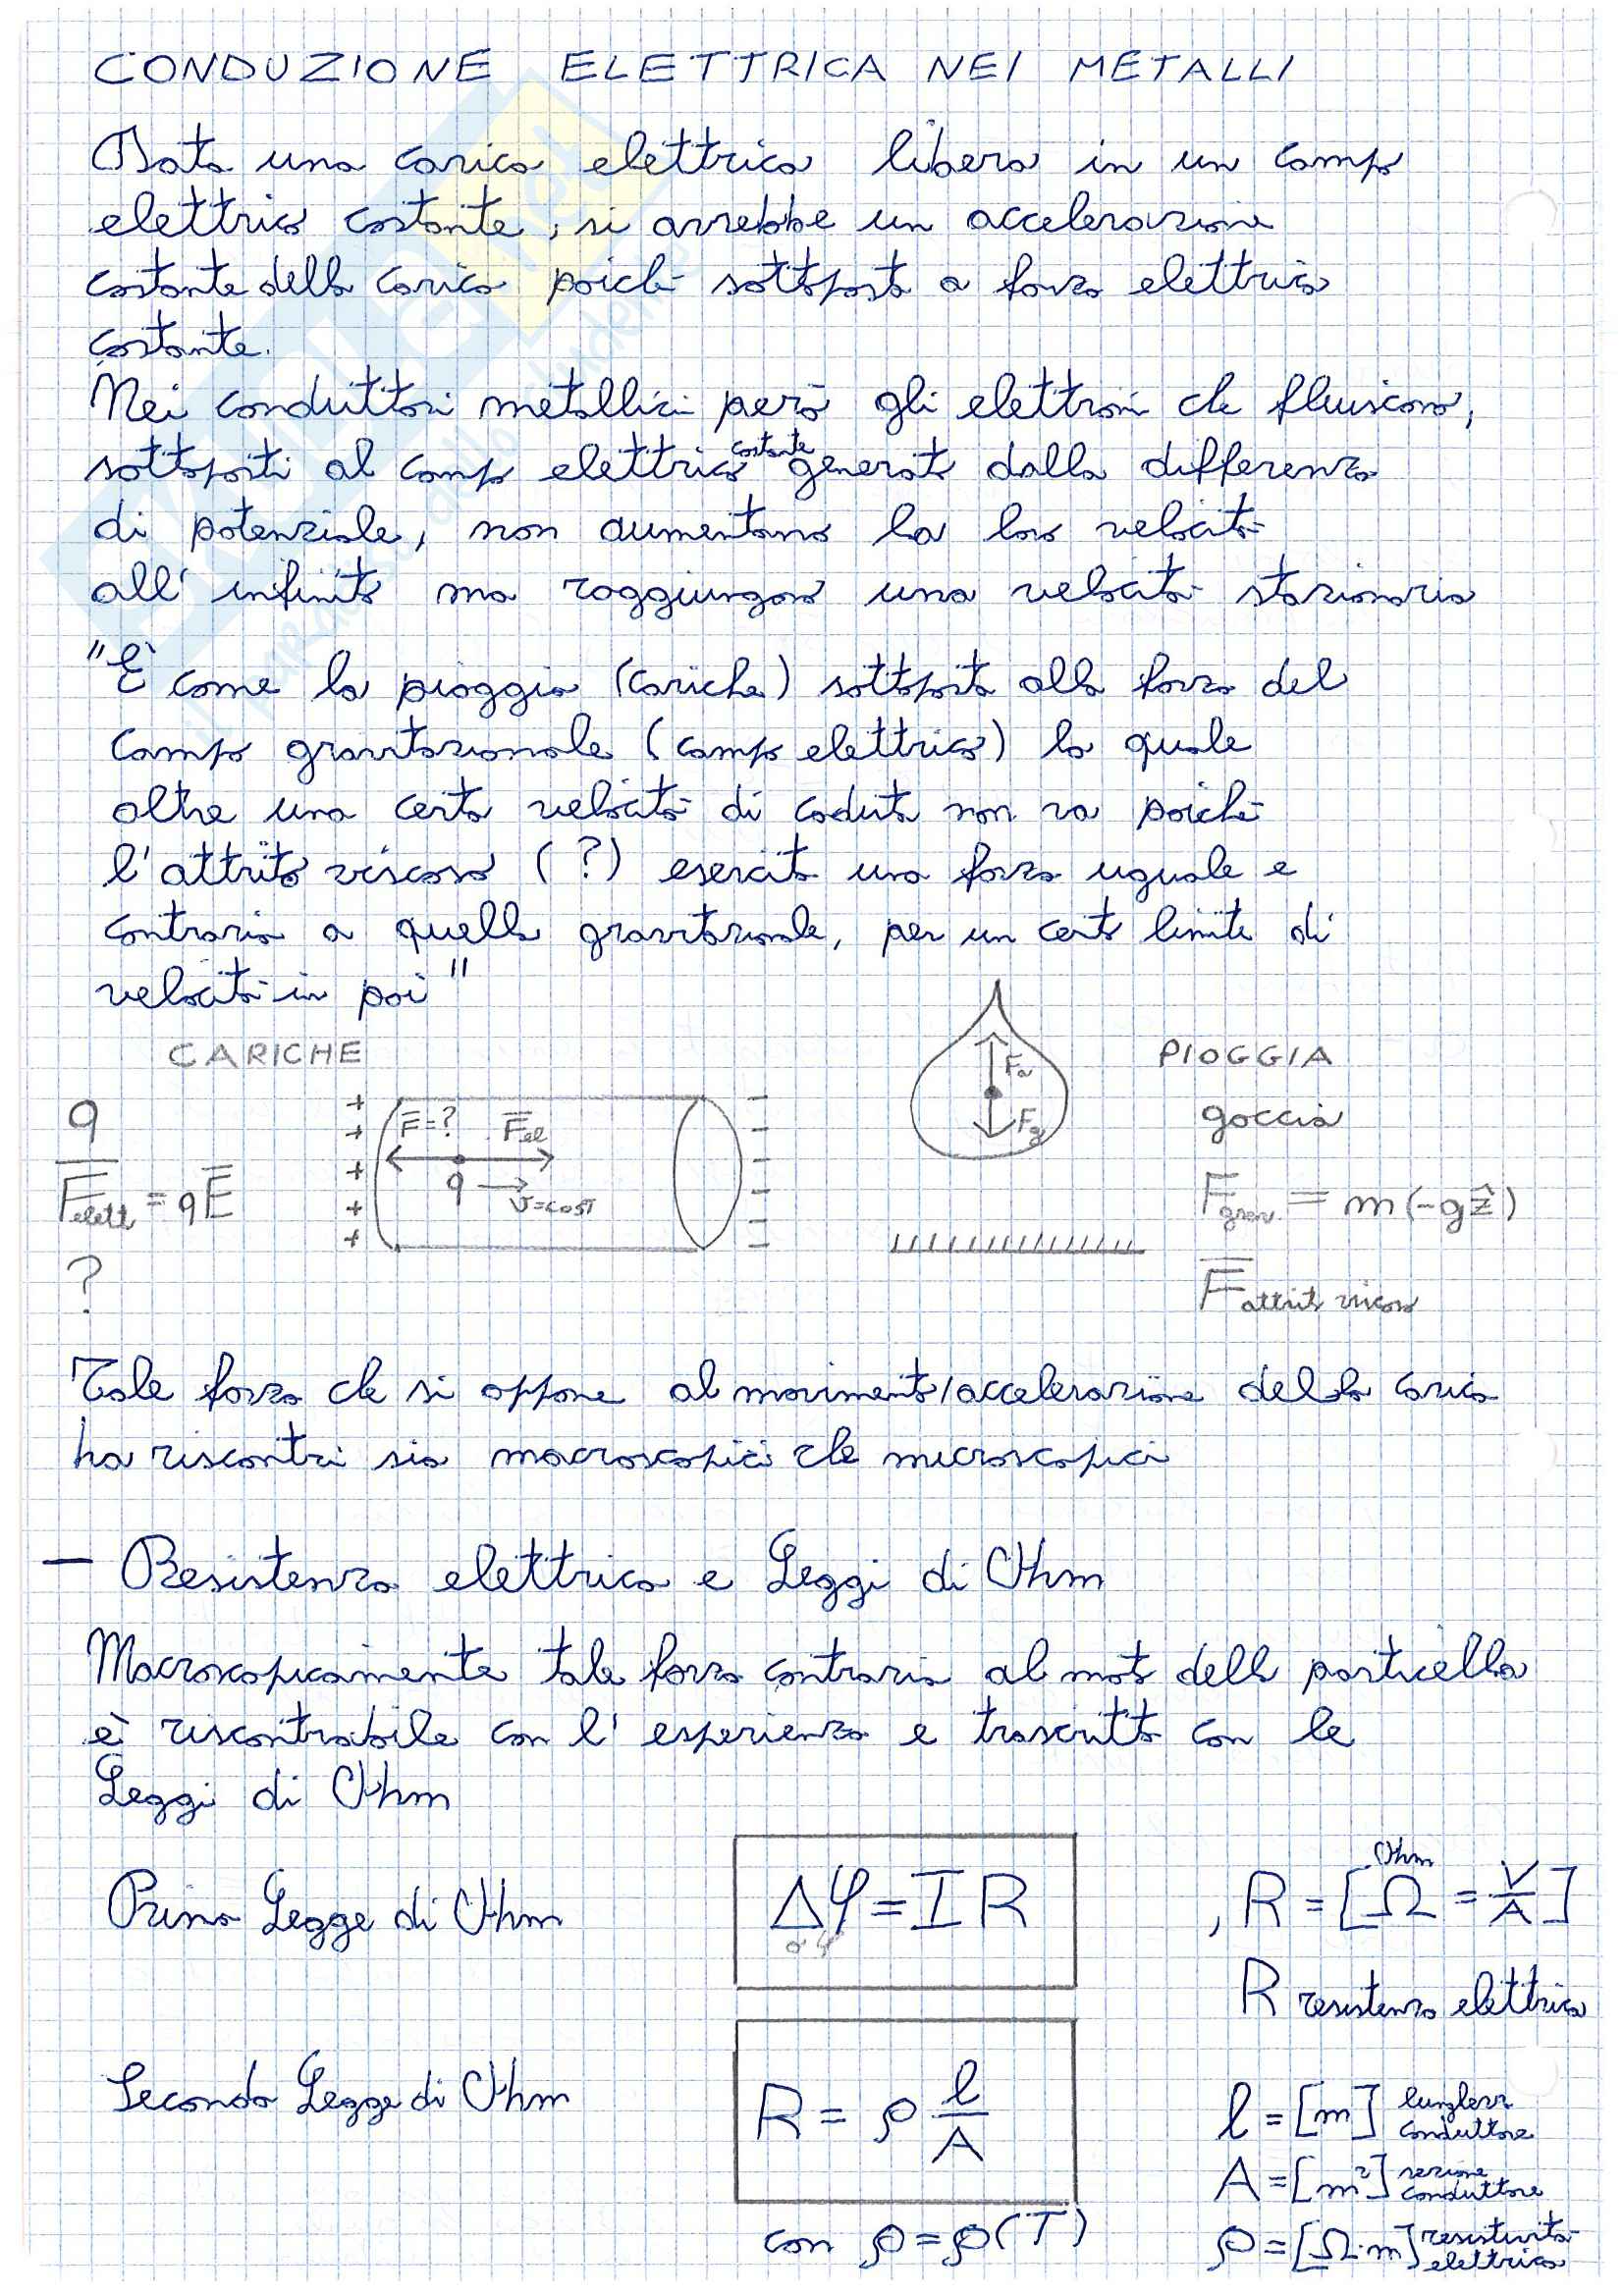 CONDUZIONE ELETTRICA NEI METALLI
Data una carica elettrica libera in un campo
elettrico costante, si avrebbe un accelerazione
costante della carica poiché sottoposta a forza elettrica
costante.
Nei conduttori metallici però gli elettroni che fluiscono,
sottoposti al campo elettrico costante generato dalla differenza
di potenziale, non aumentano la loro velocità
all'infinito ma raggiungono una velocità stazionaria
"È come la pioggia (cariche) sottoposta alla forza del
campo gravitazionale (campo elettrico) la quale
oltre una certa velocità di caduta non va poiché
l'attrito viscoso (?) esercita una forza uguale e
contraria a quella gravitazionale, per un certo limite di
velocità in poi"
CARICHE
PIOGGIA
q
+ + + + +
F=? Fel
q → v=cost
− − − − −
Fa
Fg
goccia
Felett = qE
Fgrav. = m(-gẑ)
?
Fattrito viscoso
Tale forza che si oppone al movimento/accelerazione della carica
ha riscontri sia macroscopici che microscopici
— Resistenza elettrica e Leggi di Ohm
Macroscopicamente tale forza contraria al moto della particella
è riscontrabile con l'esperienza e trascritta con le
Leggi di Ohm
Prima Legge di Ohm
Δφ = I R
, R = [Ω = V/A]
Ohm
R resistenza elettrica
Seconda Legge di Ohm
R = ρ l/A
l = [m] lunghezza conduttore
A = [m²] sezione conduttore
con ρ = ρ(T)
ρ = [Ω·m] resistività elettrica